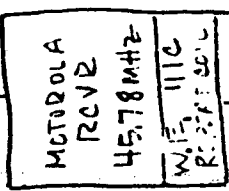 MOTOROLA
RCVR
45.78 MHz
W.E. 111C